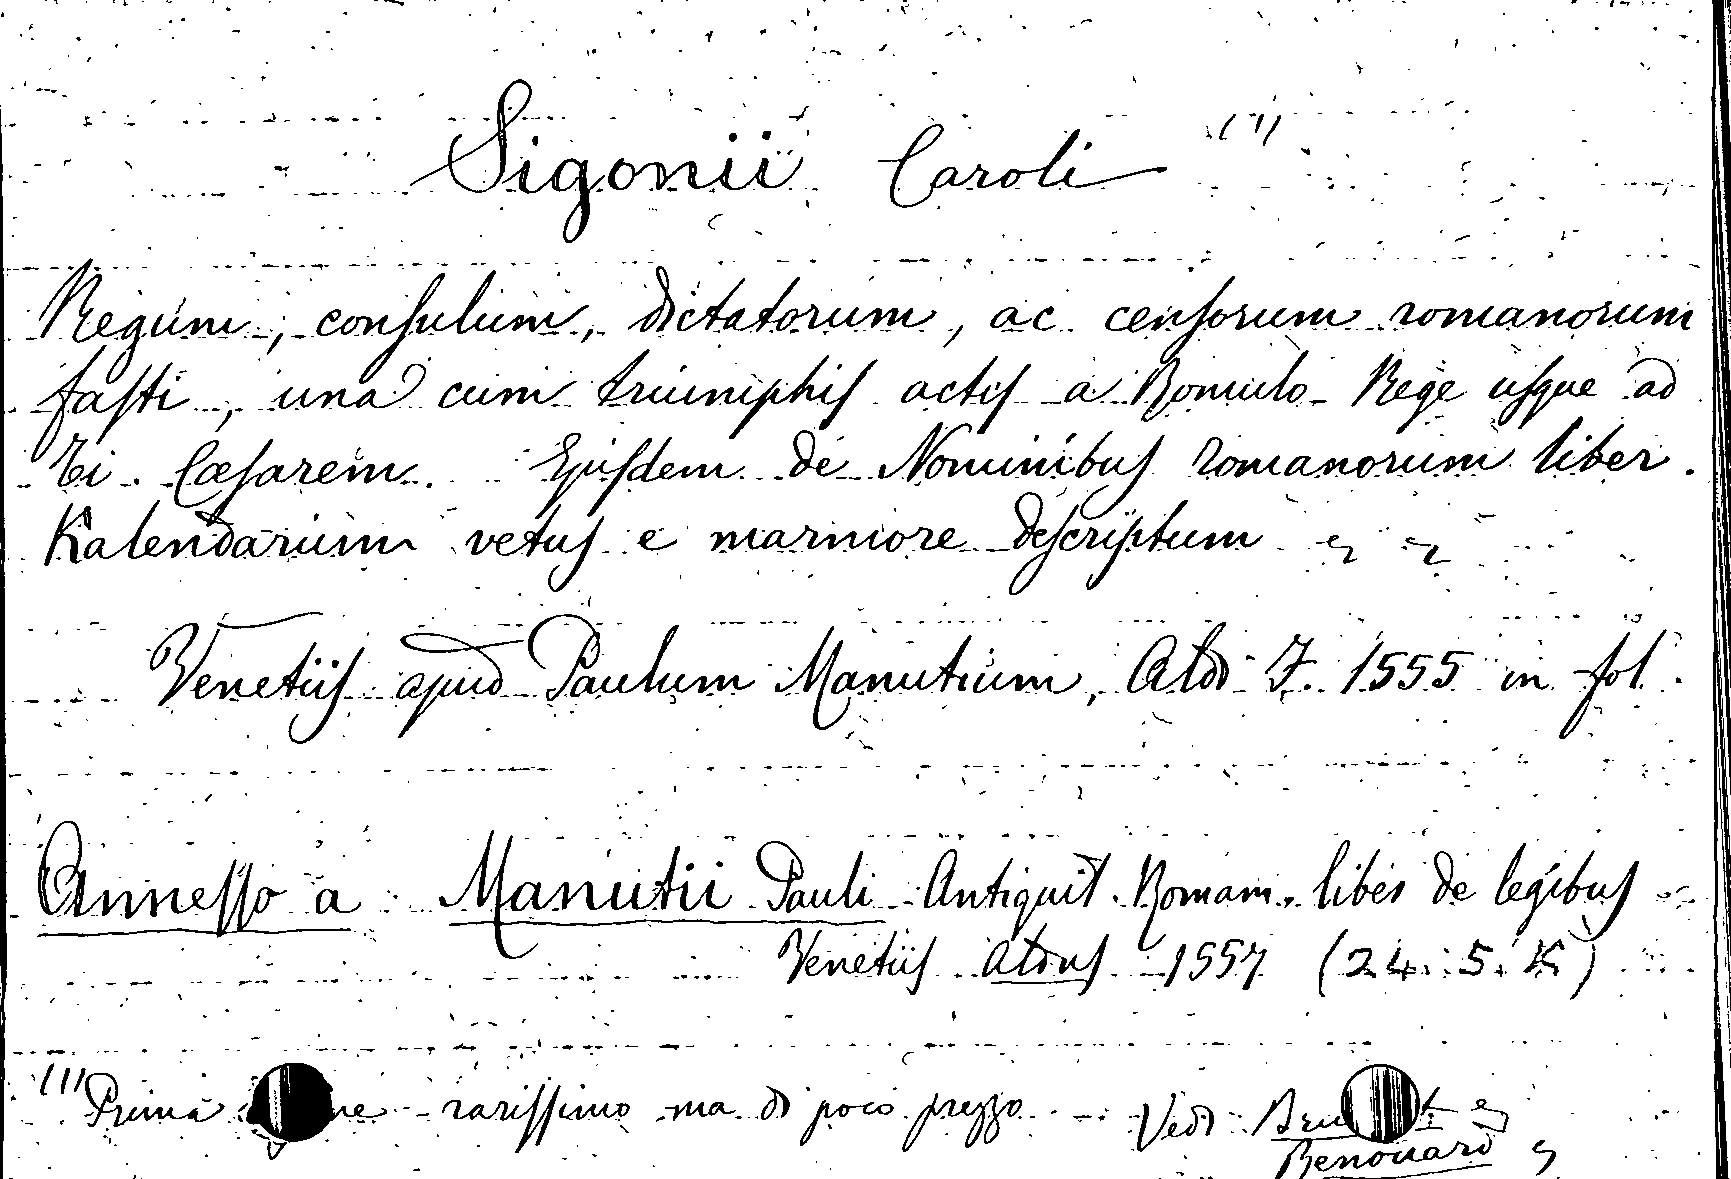 Sigonii Caroli (1)
Regum, consulum, dictatorum, ac censorum romanorum
fasti, una cum triumphis actis a Romulo Rege usque ad
Ti. Cæsarem. Ejusdem de Nominibus romanorum liber.
Kalendarium vetus e marmore descriptum
Venetiis apud Paulum Manutium, Aldi F. 1555 in fol.
Annesso a Manutii Pauli Antiquit. Roman. liber de legibus
Venetiis Aldus 1557 (24. 5. K)
(1) Prima rarissimo ma di poco prezzo Vedi
Renouard